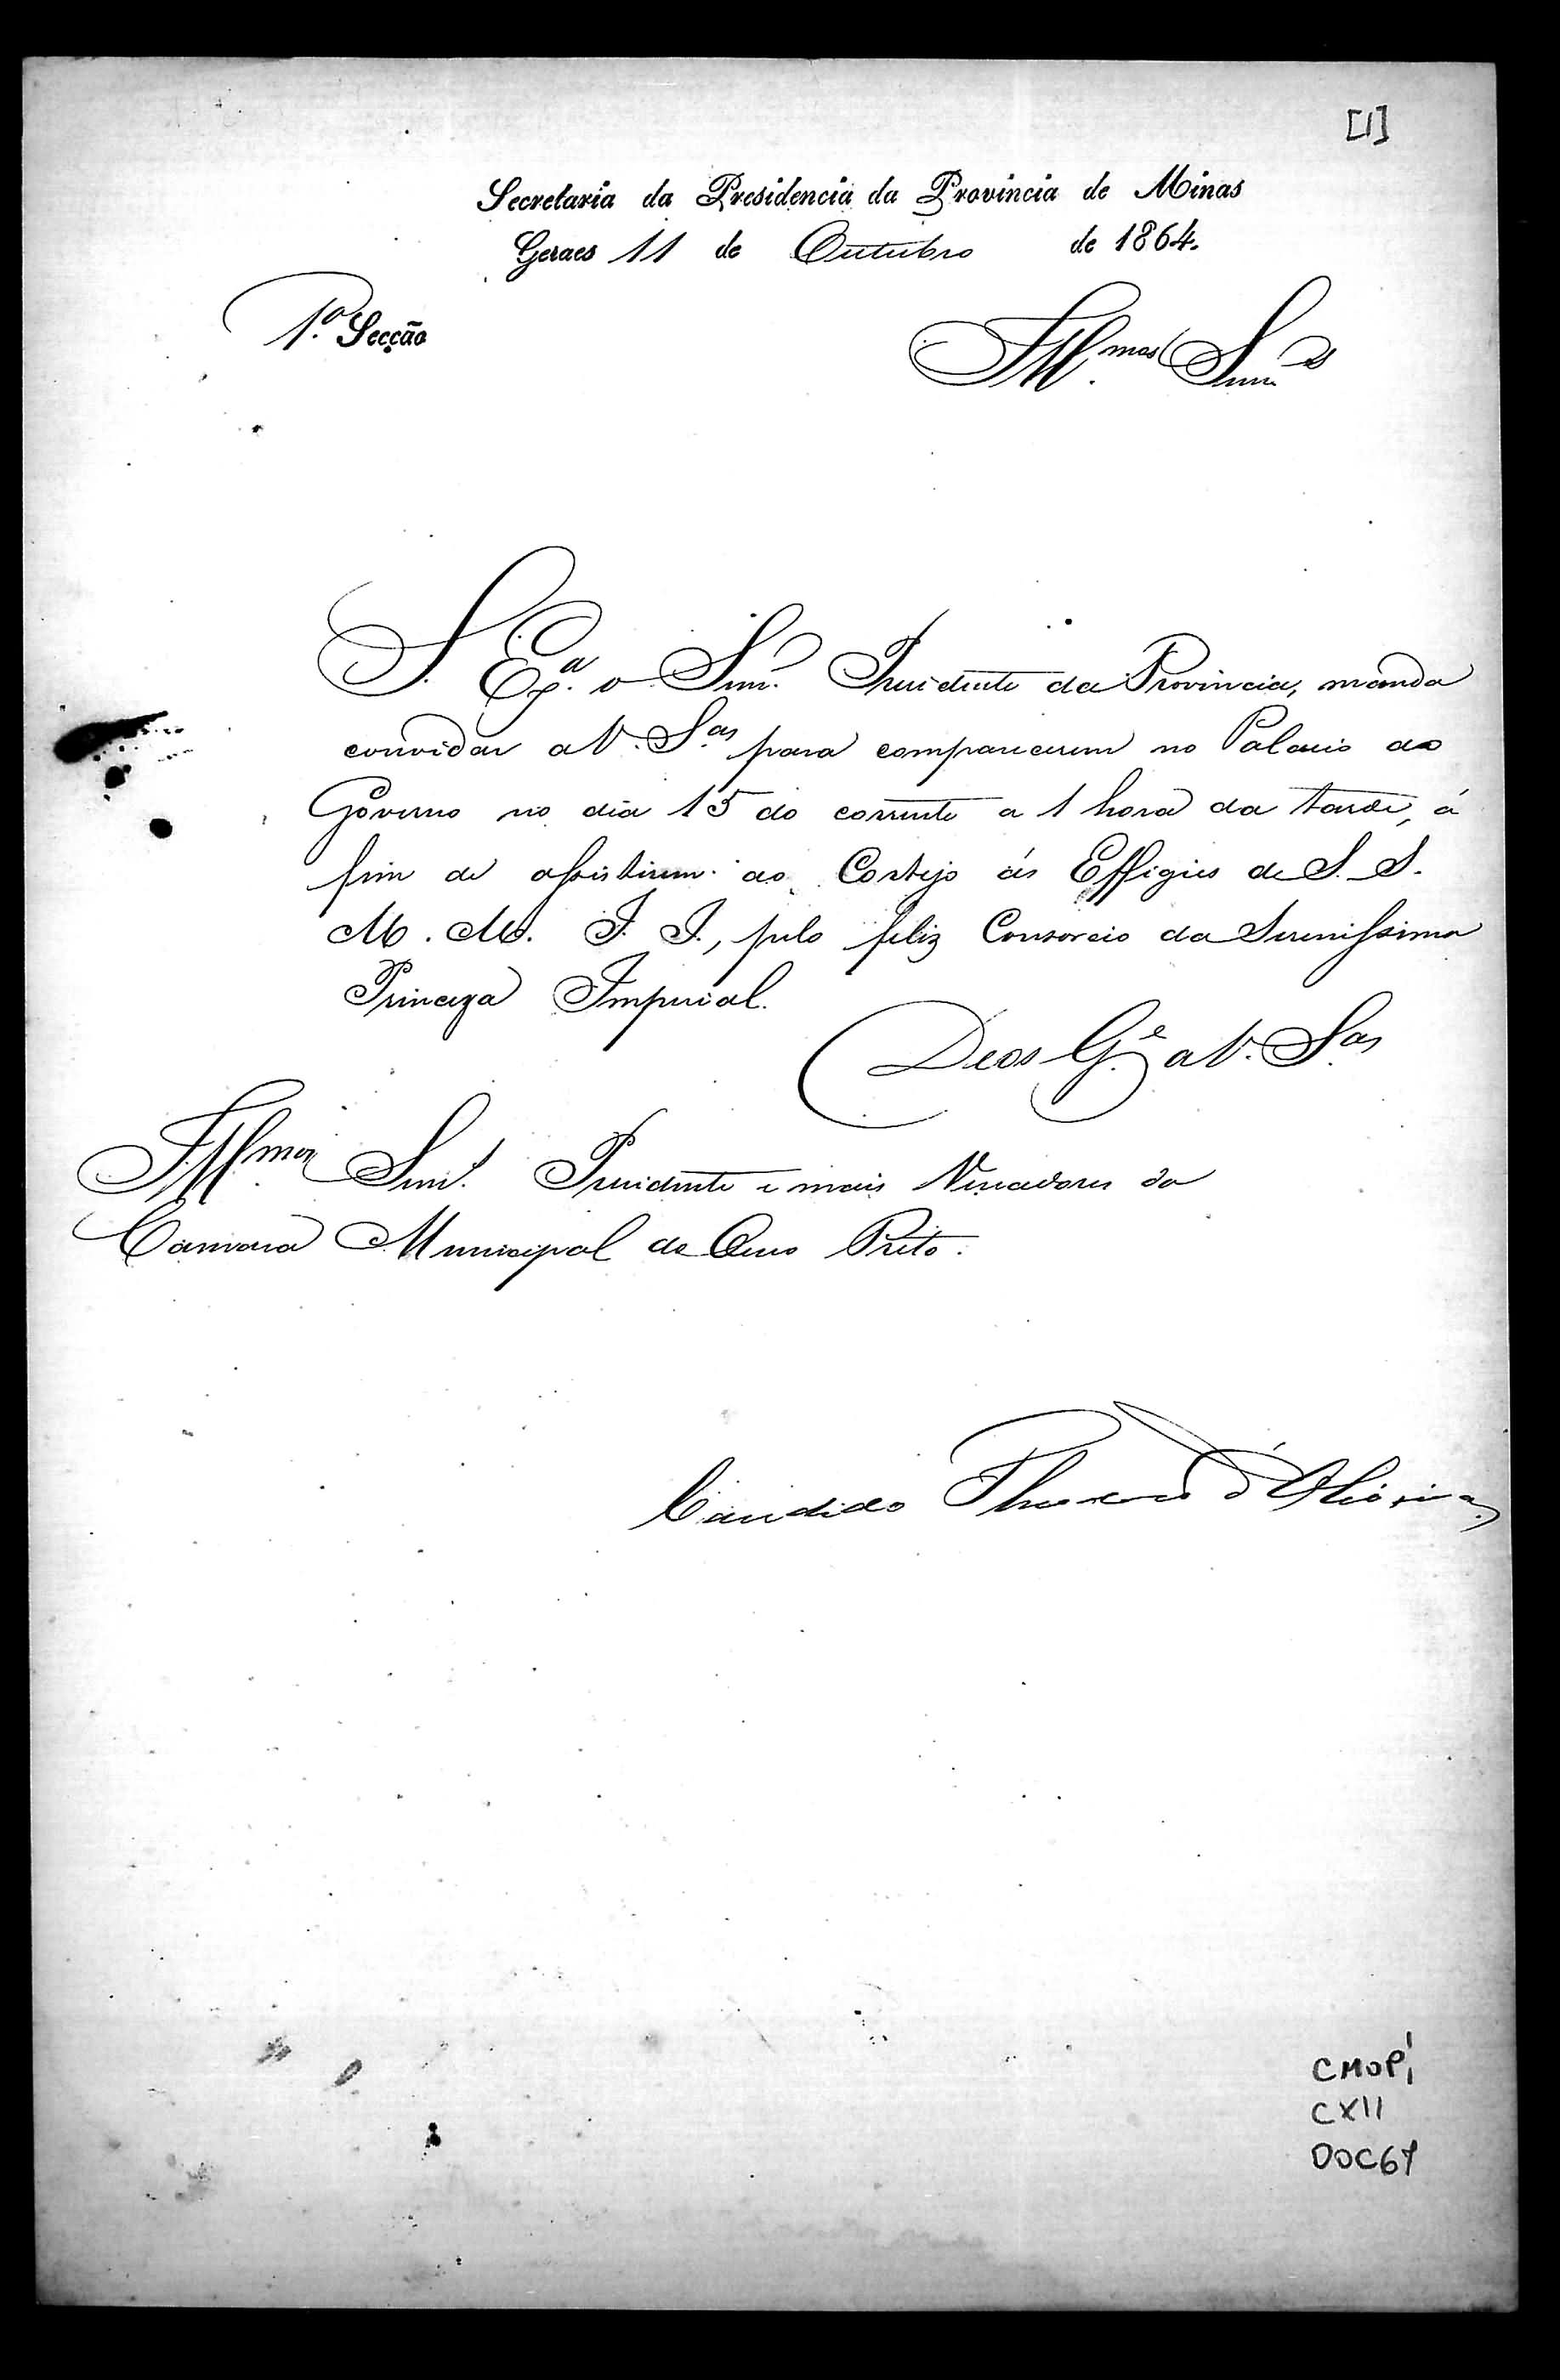 [1]
Secretaria da Presidencia da Provincia de Minas
Geraes 11 de Outubro de 1864.
1.ª Secção
Ill.mos Snr.es
S. Ex.ª o Snr. Presidente da Provincia, manda
convidar a V. S.as para comparecerem no Palacio do
Governo no dia 15 do corrente a 1 hora da tarde, á
fim de assistirem ao Cortejo ás Effigies de S. S.
M. M. I. I., pelo feliz Consorcio da Serenissima
Princeza Imperial.
Deos G.e a V. S.as
Ill.mos Snr.s Presidente e mais Vereadores da
Camara Municipal do Ouro Preto.
Candido Theodoro d'Oliveira
CMOP
CX11
DOC67